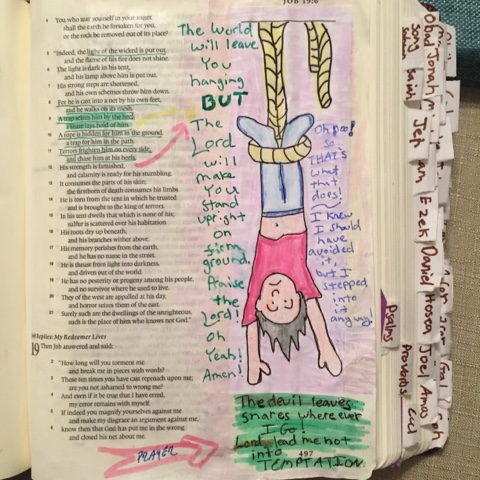 JOB 19:6
4 You who tear yourself in your anger,
shall the earth be forsaken for you,
or the rock be removed out of its place?
5 "Indeed, the light of the wicked is put out,
and the flame of his fire does not shine.
6 The light is dark in his tent,
and his lamp above him is put out.
7 His strong steps are shortened,
and his own schemes throw him down.
8 For he is cast into a net by his own feet,
and he walks on its mesh.
9 A trap seizes him by the heel;
a snare lays hold of him.
10 A rope is hidden for him in the ground,
a trap for him in the path.
11 Terrors frighten him on every side,
and chase him at his heels.
12 His strength is famished,
and calamity is ready for his stumbling.
13 It consumes the parts of his skin;
the firstborn of death consumes his limbs.
14 He is torn from the tent in which he trusted
and is brought to the king of terrors.
15 In his tent dwells that which is none of his;
sulfur is scattered over his habitation.
16 His roots dry up beneath,
and his branches wither above.
17 His memory perishes from the earth,
and he has no name in the street.
18 He is thrust from light into darkness,
and driven out of the world.
19 He has no posterity or progeny among his people,
and no survivor where he used to live.
20 They of the west are appalled at his day,
and horror seizes them of the east.
21 Surely such are the dwellings of the unrighteous,
such is the place of him who knows not God."
Job Replies: My Redeemer Lives
19 Then Job answered and said:
2 "How long will you torment me
and break me in pieces with words?
3 These ten times you have cast reproach upon me;
are you not ashamed to wrong me?
4 And even if it be true that I have erred,
my error remains with myself.
5 If indeed you magnify yourselves against me
and make my disgrace an argument against me,
6 know then that God has put me in the wrong
and closed his net about me.
The world
will leave
You
hanging
BUT
The
Lord
will
make
You
stand
upright
on
firm
ground.
Praise
the
Lord!
Oh
Yeah!
Amen!
Oh poo!
So
THAT'S
what
that
does!
I knew
I should
have
avoided
it,
but I
stepped
into
it
anyway!
The devil leaves
snares where ever
I Go!
Lord, lead me not
into
497
TEMPTATION.
PRAYER
Obad
Jonah
Song
Isaiah
Jer
Lam
Ezek
Daniel
Hosea
Joel
Amos
Psalms
Proverbs
Eccl